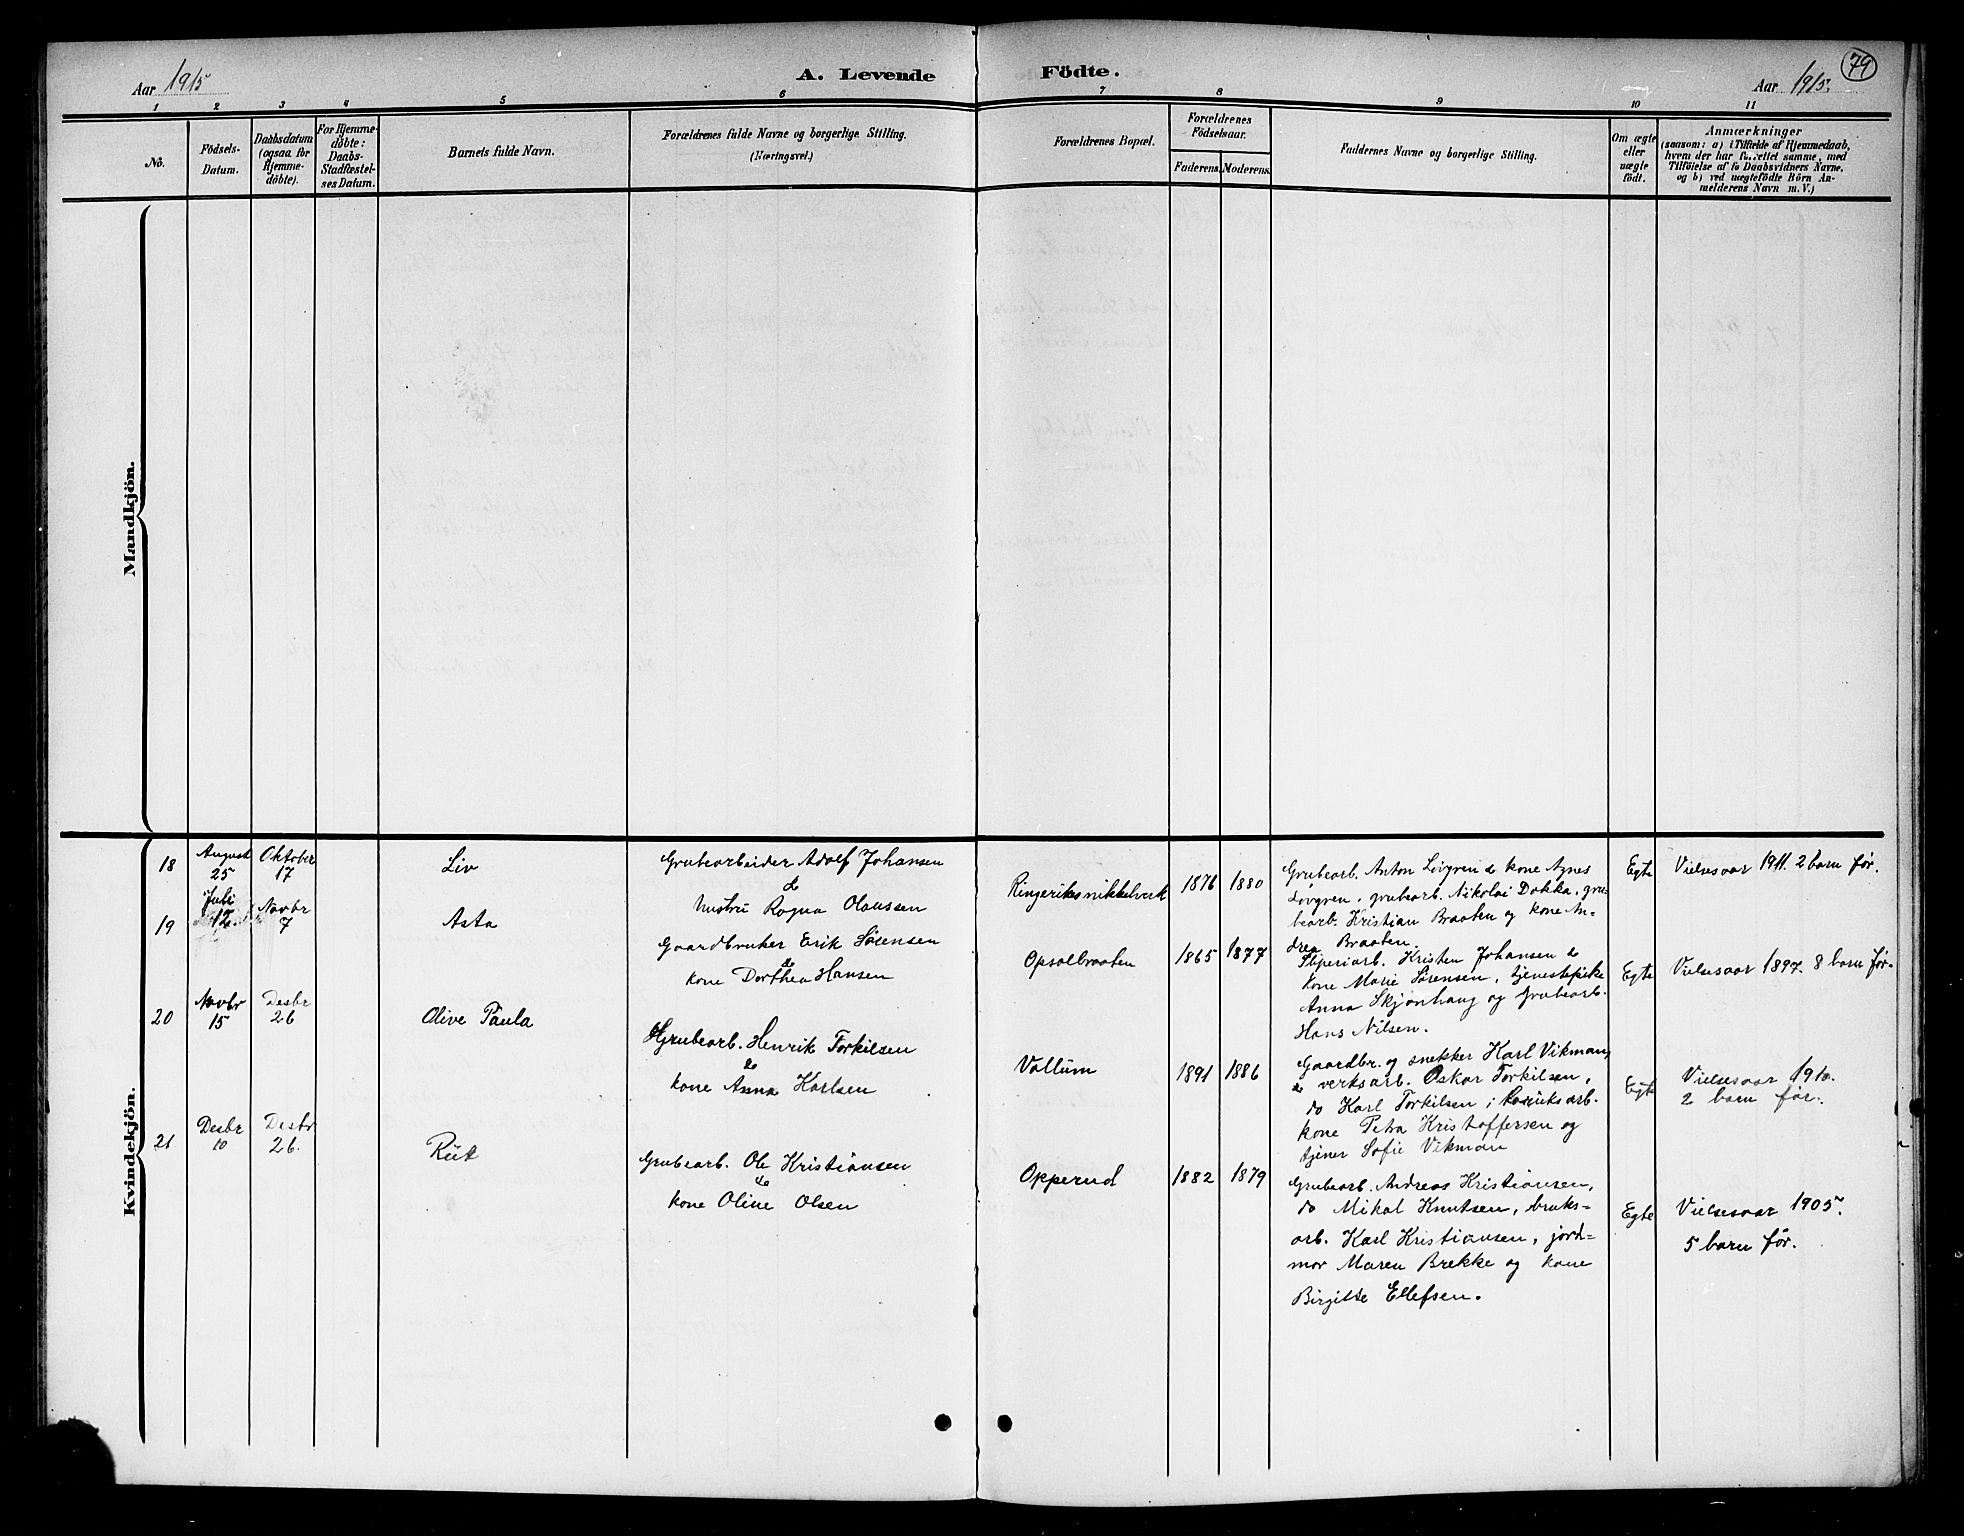 79
Aar 1915
A. Levende
Födte.
Aar 1915.
1 2 3 4 5 6 7 8 9 10 11
Nö.
Födsels-
Datum.
Daabsdatum
(ogsaa for
Hjemme-
döbte).
For Hjemme-
döbte:
Daabs-
Stadfæstel-
ses Datum.
Barnets fulde Navn.
Forældrenes fulde Navne og borgerlige Stilling.
(Næringsvei.)
Forældrenes Bopæl.
Forældrenes
Födselsaar.
Faderens. Moderens.
Faddernes Navne og borgerlige Stilling.
Om ægte
eller
uægte
födt.
Anmærkninger
(saasom: a) i Tilfælde af Hjemmedaab,
hvem der har forrettet samme, med
Tilföielse af to Daabsvidners Navne,
og b) ved uægtefödte Börn An-
melderens Navn m. V.)
Mandkjön.
Kvindekjön.
18
August
25
Oktober
17
Liv
Grubearbeider Adolf Johansen
&
hustru Ragna Olaussen
Ringeriks nikkelverk
1876 1880
Grubearb. Anton Løvgren & kone Agnes
Løvgren, grubearb. Nikolai Dokka, gru-
bearb. Kristian Braaten og kone An-
drea Braaten.
Egte
Vielsesaar 1911. 2 barn før.
19
Juli
12
Novbr
7
Asta
Gaardbruker Erik Sørensen
&
kone Dorthea Hansen
Opsalbraaten
1865 1877
Sliperiarb. Kristen Johansen &
kone Marie Sørensen, tjenestepike
Anna Skjønhaug og Grubearb.
Hans Nilsen.
Egte
Vielsesaar 1897. 8 barn før.
20
Novbr
15
Desbr
26
Olive Paula
Grubearb. Henrik Torkilsen
&
kone Anna Karlsen
Vollum
1891 1886
Gaardbr. og snekker Karl Vikman,
& verksarb. Oskar Torkilsen,
do Karl Torkilsen,
kone Petra Kristoffersen og
tjener Sofie Vikman
Egte
Vielsesaar 1910.
2 barn før.
21
Desbr
10
Desbr
26.
Rut
Grubearb. Ole Kristiansen
&
kone Oline Olsen
Opperud
1882 1879
Grubearb. Andreas Kristiansen,
do Mikal Knutsen, bruks-
arb. Karl Kristiansen, jord-
mor Maren Brekke og kone
Birgitte Ellefsen.
Egte
Vielsesaar 1905.
5 barn før.